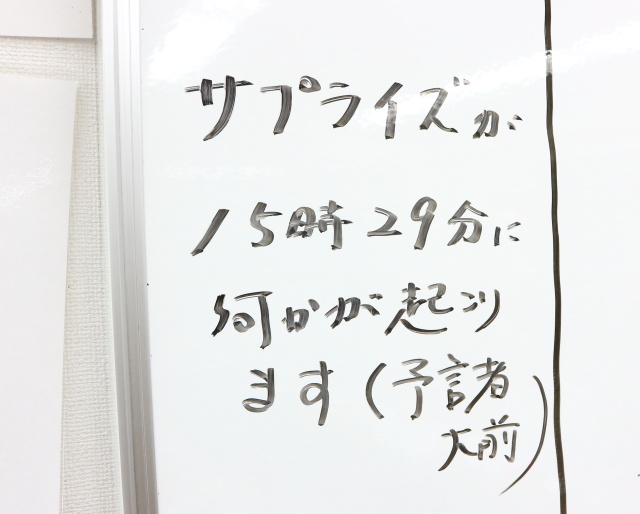 サプライズが
15時29分に
何かが起こり
ます(予言者
大前)